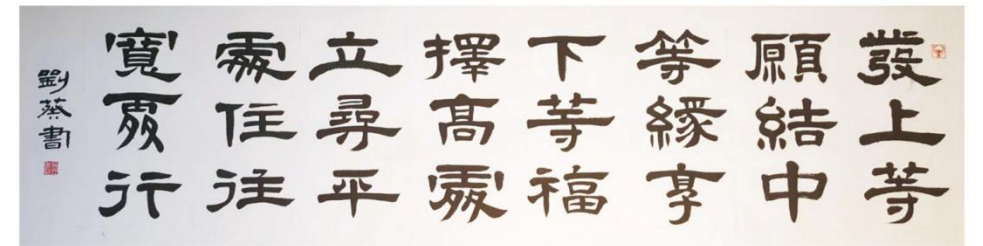 發上等
願結中
等緣享
下等福
擇高處
立尋平
處住往
寬處行
劉葵書